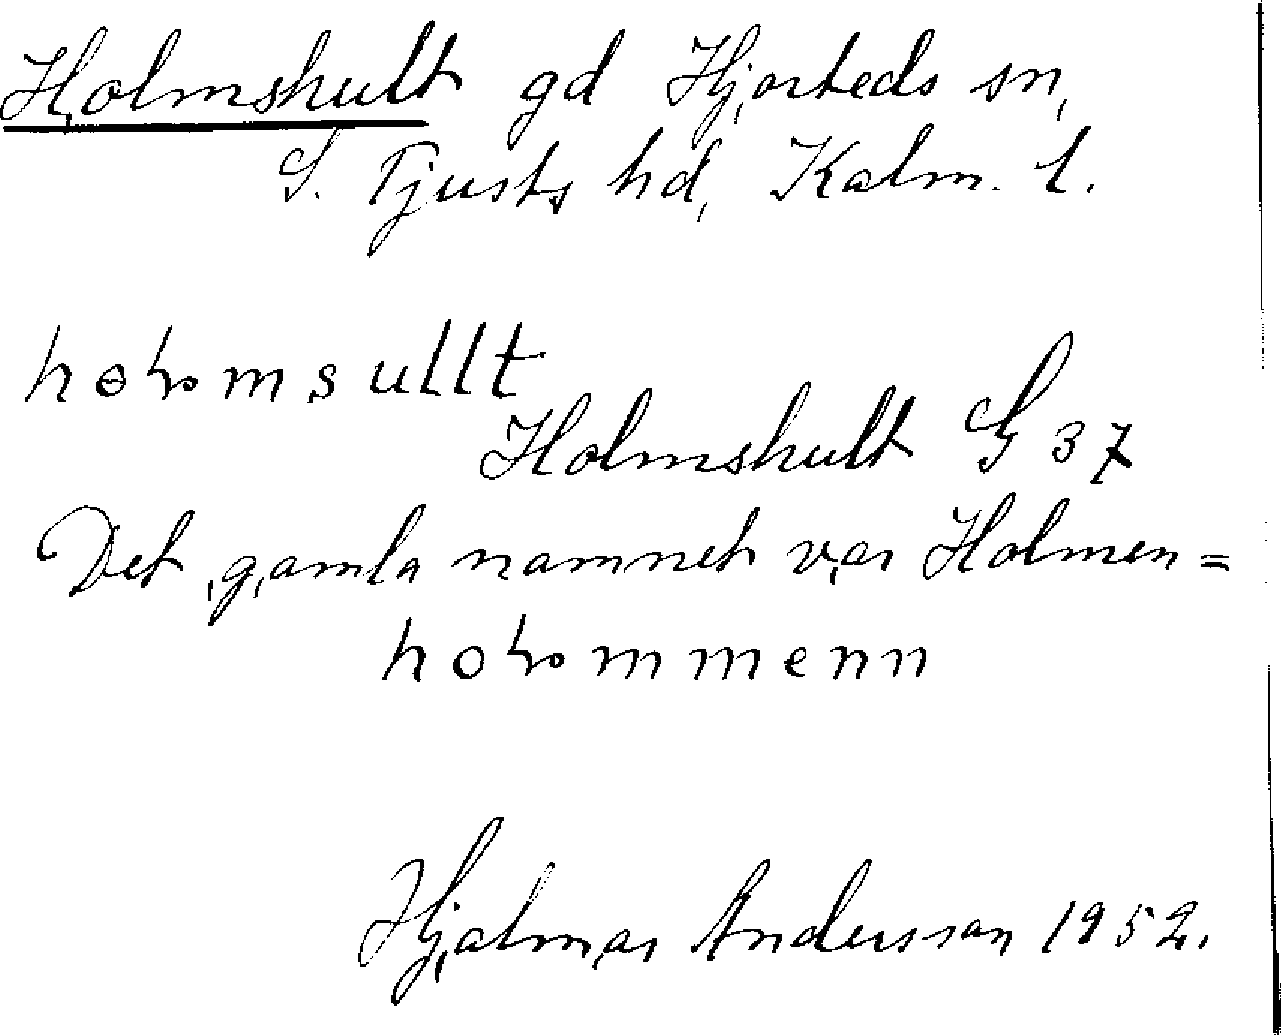 Holmshult gd Hjorteds sn,
S. Tjusts hd, Kalm. l.
Holmshult G 37
Det gamla namnet var Holmen =
Hjalmar Andersson 1952.